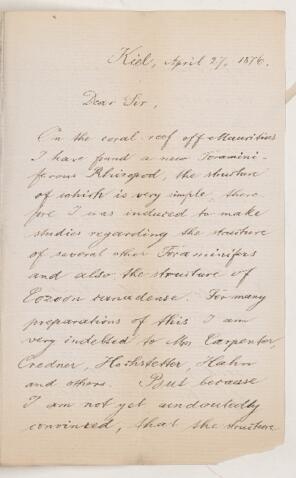 Kiel, April 27. 1876.
Dear Sir,
On the coral reef off Mauritius
I have found a new Foramini-
ferous Rhizopod, the structure
of which is very simple, there
fore I was induced to make
studies regarding the structure
of several other Foraminifers
and also the structure of
Eozoon canadense. For many
preparations of this I am
very indebted to Mrs Carpenter,
Credner, Hochstetter, Hahn
and others. But because
I am not yet undoutedly
convinced, that the structure